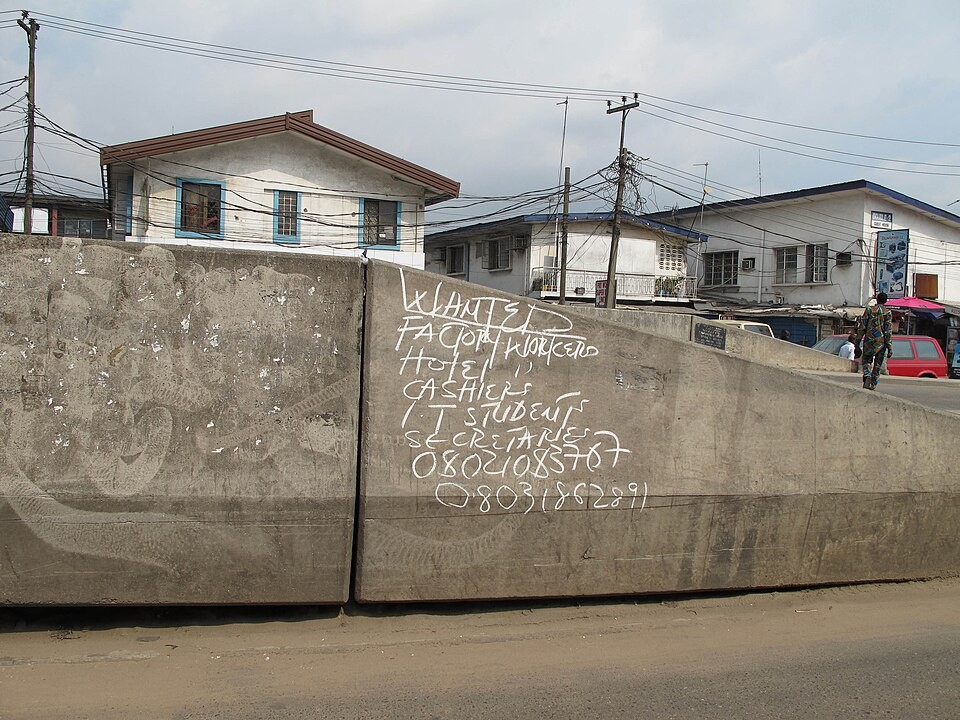 WANTED
FACTORY WORKERS
HOTEL "
CASHIERS
I.T STUDENTS
SECRETARIES
08021083767
08031862891